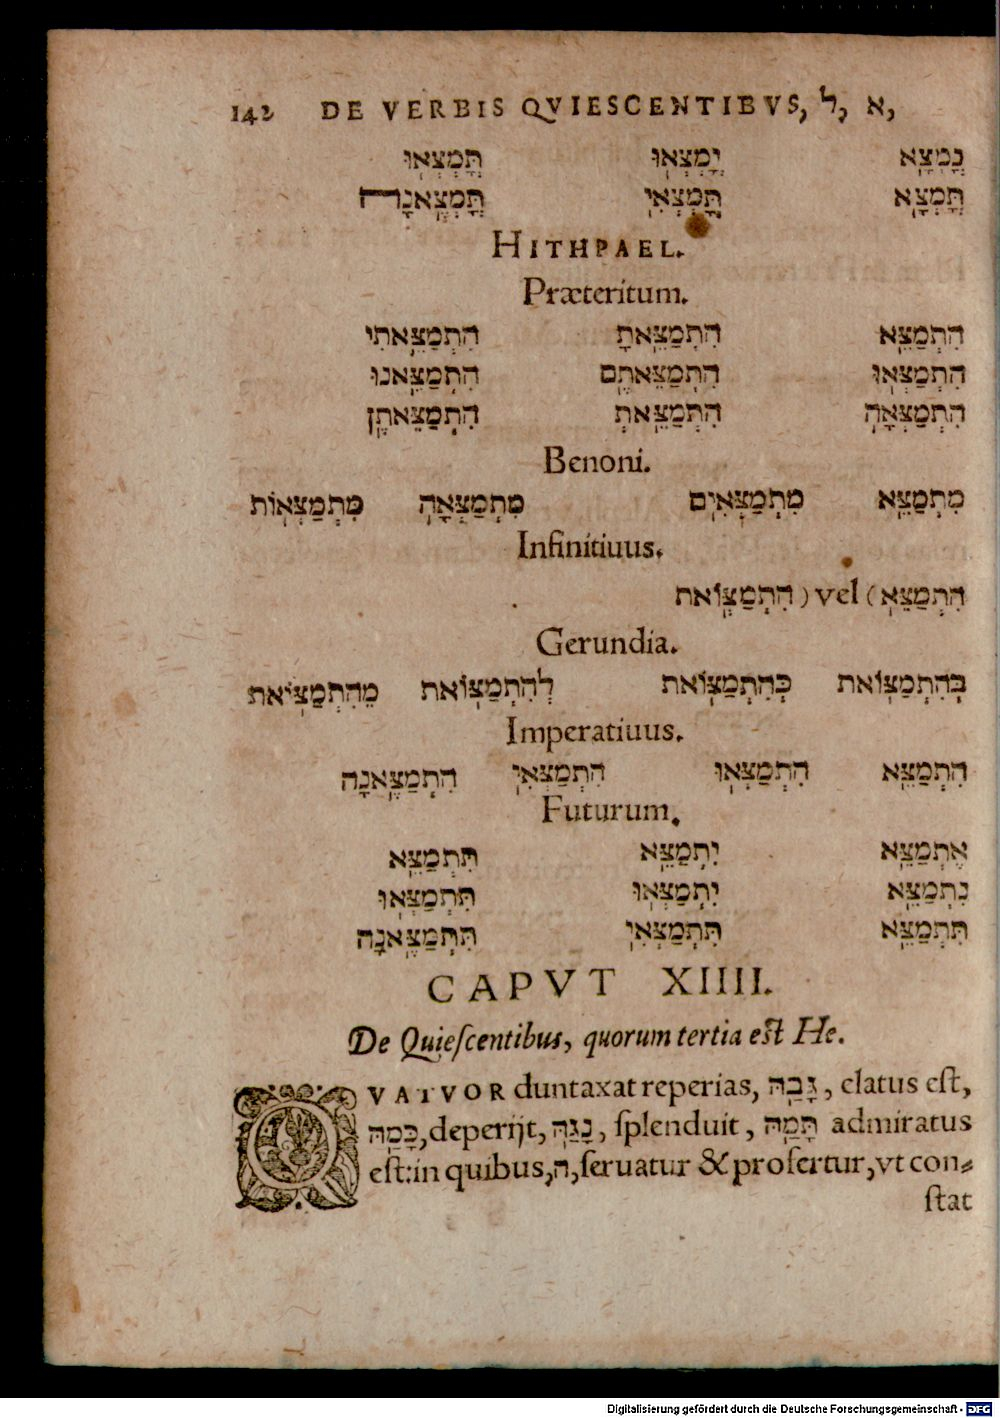 142 DE VERBIS QVIESCENTIBVS, ל, א,
נָמְצָא יָמְצְאוּ תָּמְצְאוּ
תָּמְצָא תָּמְצְאִי תָּמְצֶאנָה
HITHPAEL.
Præteritum.
הִתְמַצֵּא הִתְמַצֵּאתָ הִתְמַצֵּאתִי
הִתְמַצְּאוּ הִתְמַצֵּאתֶם הִתְמַצֵּאנוּ
הִתְמַצְּאָה הִתְמַצֵּאתְ הִתְמַצֵּאתֶן
Benoni.
מִתְמַצֵּא מִתְמַצְּאִים מִתְמַצְּאָה מִתְמַצְּאוֹת
Infinitiuus.
הִתְמַצֵּא) vel (הִתְמַצּוֹאת
Gerundia.
בְּהִתְמַצּוֹאת כְּהִתְמַצּוֹאת לְהִתְמַצּוֹאת מֵהִתְמַצּוֹאת
Imperatiuus.
הִתְמַצֵּא הִתְמַצְּאוּ הִתְמַצְּאִי הִתְמַצֶּאנָה
Futurum.
אֶתְמַצֵּא יִתְמַצֵּא תִּתְמַצֵּא
נִתְמַצֵּא יִתְמַצְּאוּ תִּתְמַצְּאוּ
תִּתְמַצֵּא תִּתְמַצְּאִי תִּתְמַצֶּאנָה
CAPVT XIIII.
De Quieſcentibus, quorum tertia eſt He.
QVATVOR duntaxat reperias, גָּבַהּ, elatus eſt,
כָּמַהּ, deperijt, נָגַהּ, ſplenduit, תָּמַהּ admiratus
eſt: in quibus, ה, ſeruatur & profertur, vt con-
ſtat
Digitalisierung gefördert durch die Deutsche Forschungsgemeinschaft - DFG